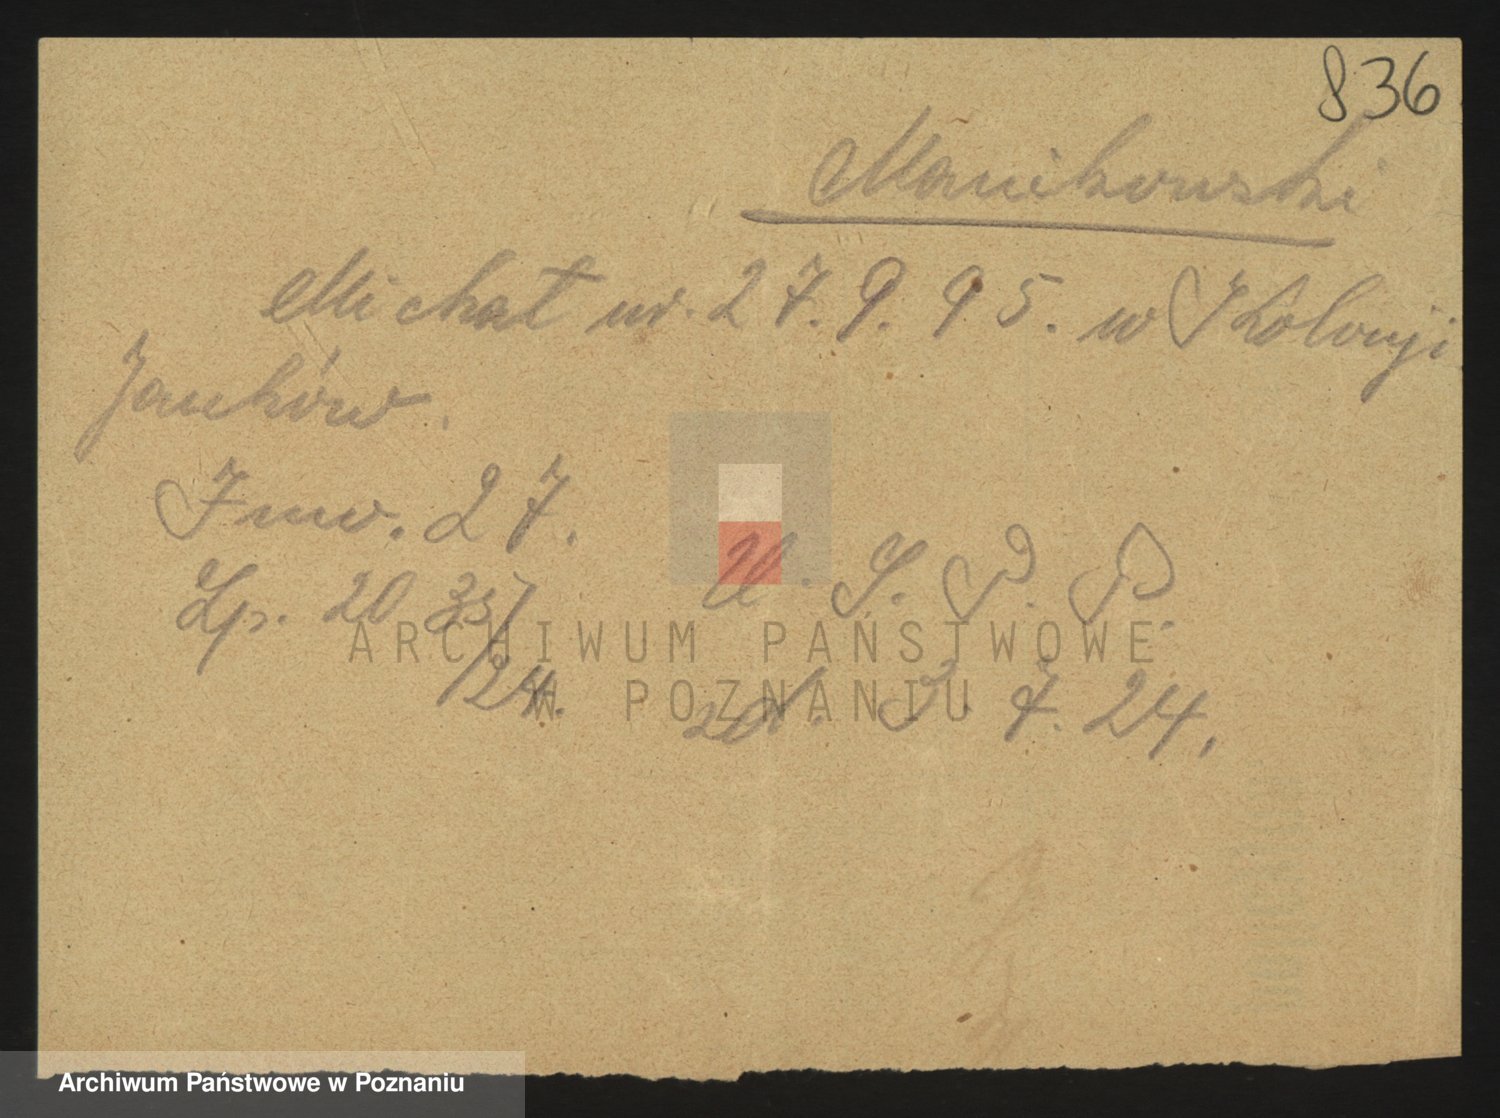 836
Manikowski
Michał ur. 27. 9. 95. w Kolonji
Janków.
Inw. 27.
Lp. 20 35/24.
U. S. P. P.
zd. 3. 7. 24.
ARCHIWUM PAŃSTWOWE
W POZNANIU
Archiwum Państwowe w Poznaniu